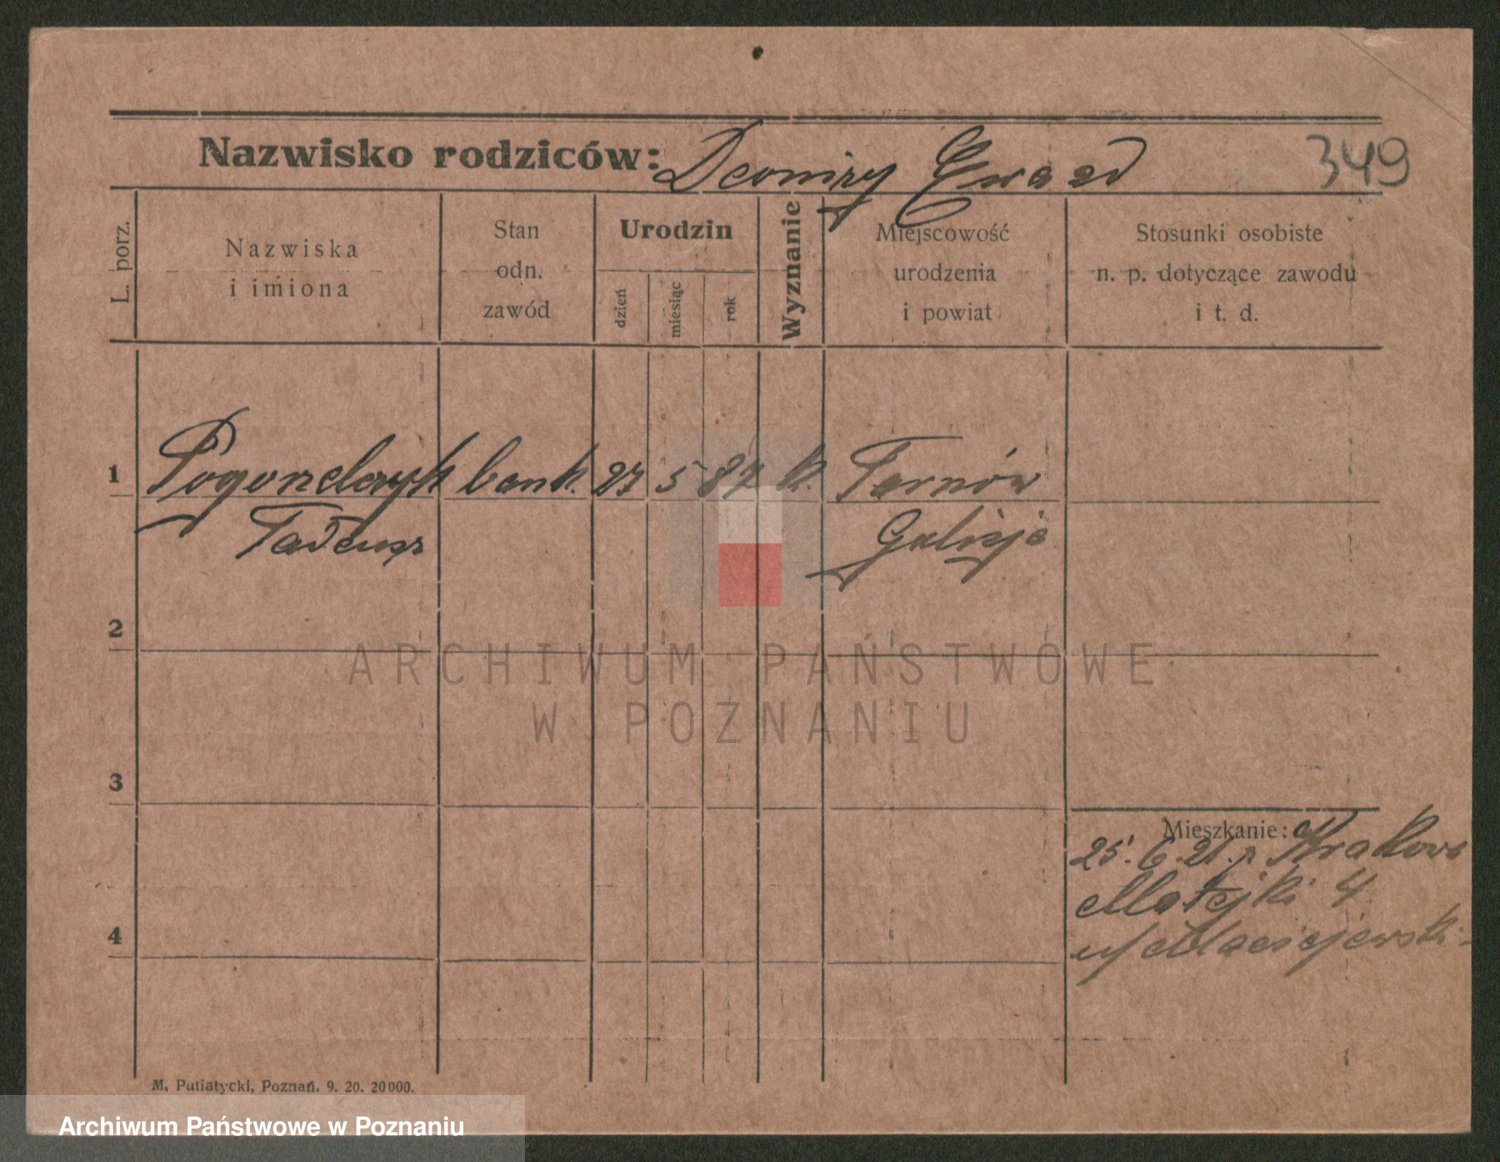 Nazwisko rodziców:
349
L. porz.
Nazwiska
i imiona
Stan
odn.
zawód
Urodzin
dzień
miesiąc
rok
Wyznanie
Miejscowość
urodzenia
i powiat
Stosunki osobiste
n. p. dotyczące zawodu
i t. d.
1 bank. 27 5 87 k. Tarnów
Tadeusz Galicja
2
ARCHIWUM PAŃSTWOWE
W POZNANIU
3
Mieszkanie:
25. 6. 21. z Krakowa
Matejki 4
u/ Maciejewski
4
M. Putiatycki, Poznań, 9. 20. 20000.
Archiwum Państwowe w Poznaniu